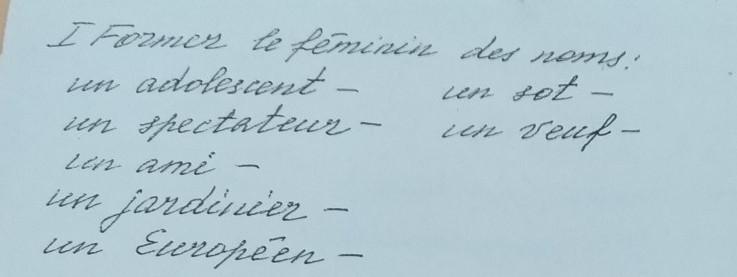 I Former le féminin des noms:
un adolescent – un sot –
un spectateur – un veuf –
un ami –
un jardinier –
un Européen –